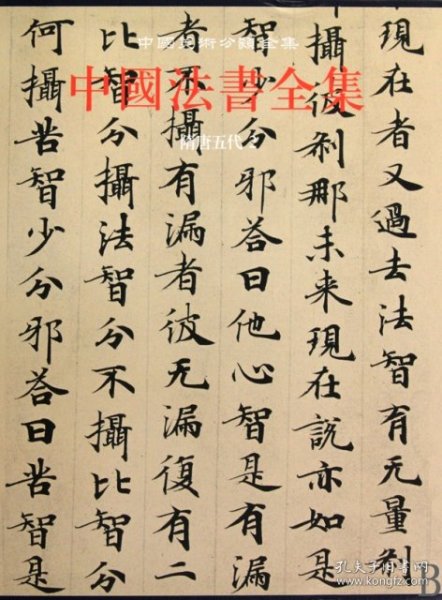 中國美術分類全集
中國法書全集
隋唐五代
現在者又過去法智有无量刹
攝彼刹那未来現在説亦如是
智少分邪答曰他心智是有漏
者不攝有漏者彼无漏復有二
比智分攝法智分不攝比智分
何攝苦智少分邪答曰苦智是
孔夫子旧书网